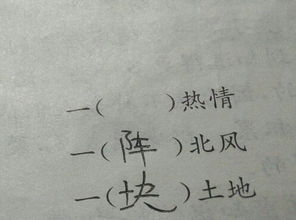 一(    )热情
一(阵)北风
一(块)土地